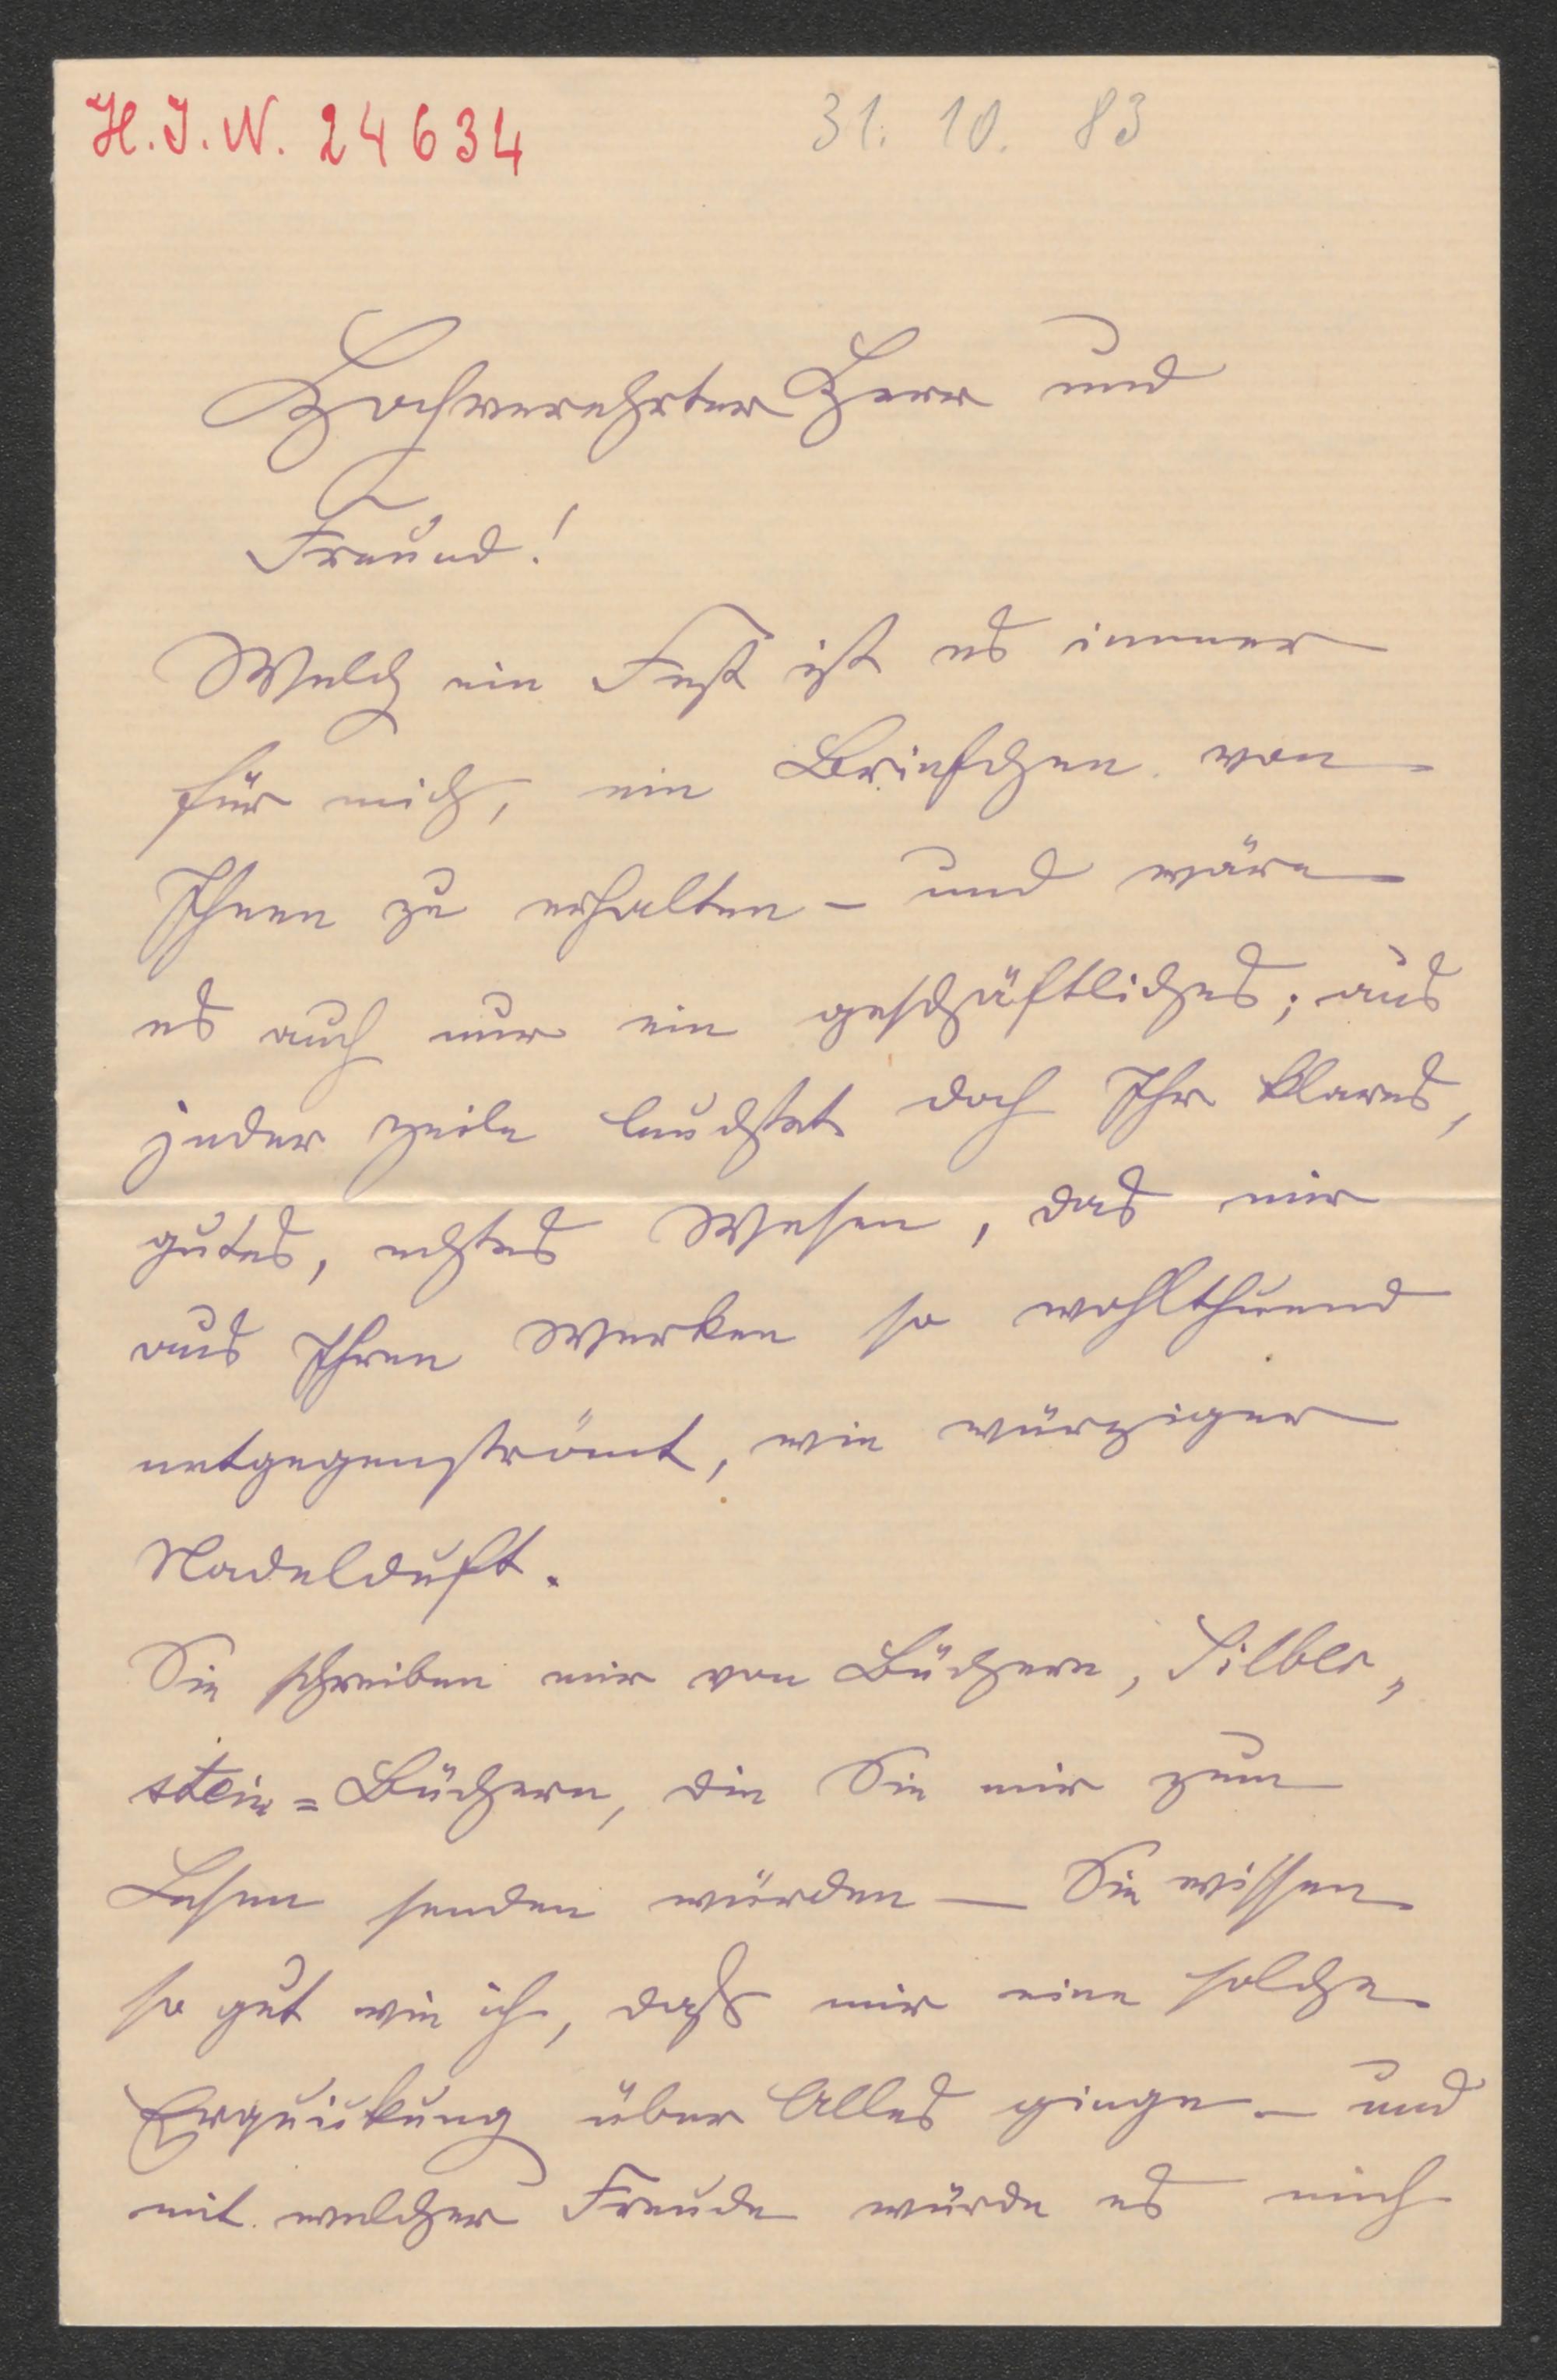 H. I. N. 24634
31. 10. 83
Hochverehrter Herr und
Freund!
Welch ein Fest ist es immer
für mich, ein Briefchen von
Ihnen zu erhalten – und wäre
es auch nur ein geschäftliches; aus
jeder Zeile leuchtet doch Ihr klares,
gutes, echtes Wesen, das mir
aus Ihren Werken so wohlthuend
entgegenströmt, wie würziger
Nadelduft.
Sie schreiben mir von Büchern, Silber„
stein=Büchern, die Sie mir zum
Lesen senden würden – Sie wissen
so gut wie ich, daß mir eine solche
Erquickung über Alles ginge – und
mit welcher Freude würde es mich